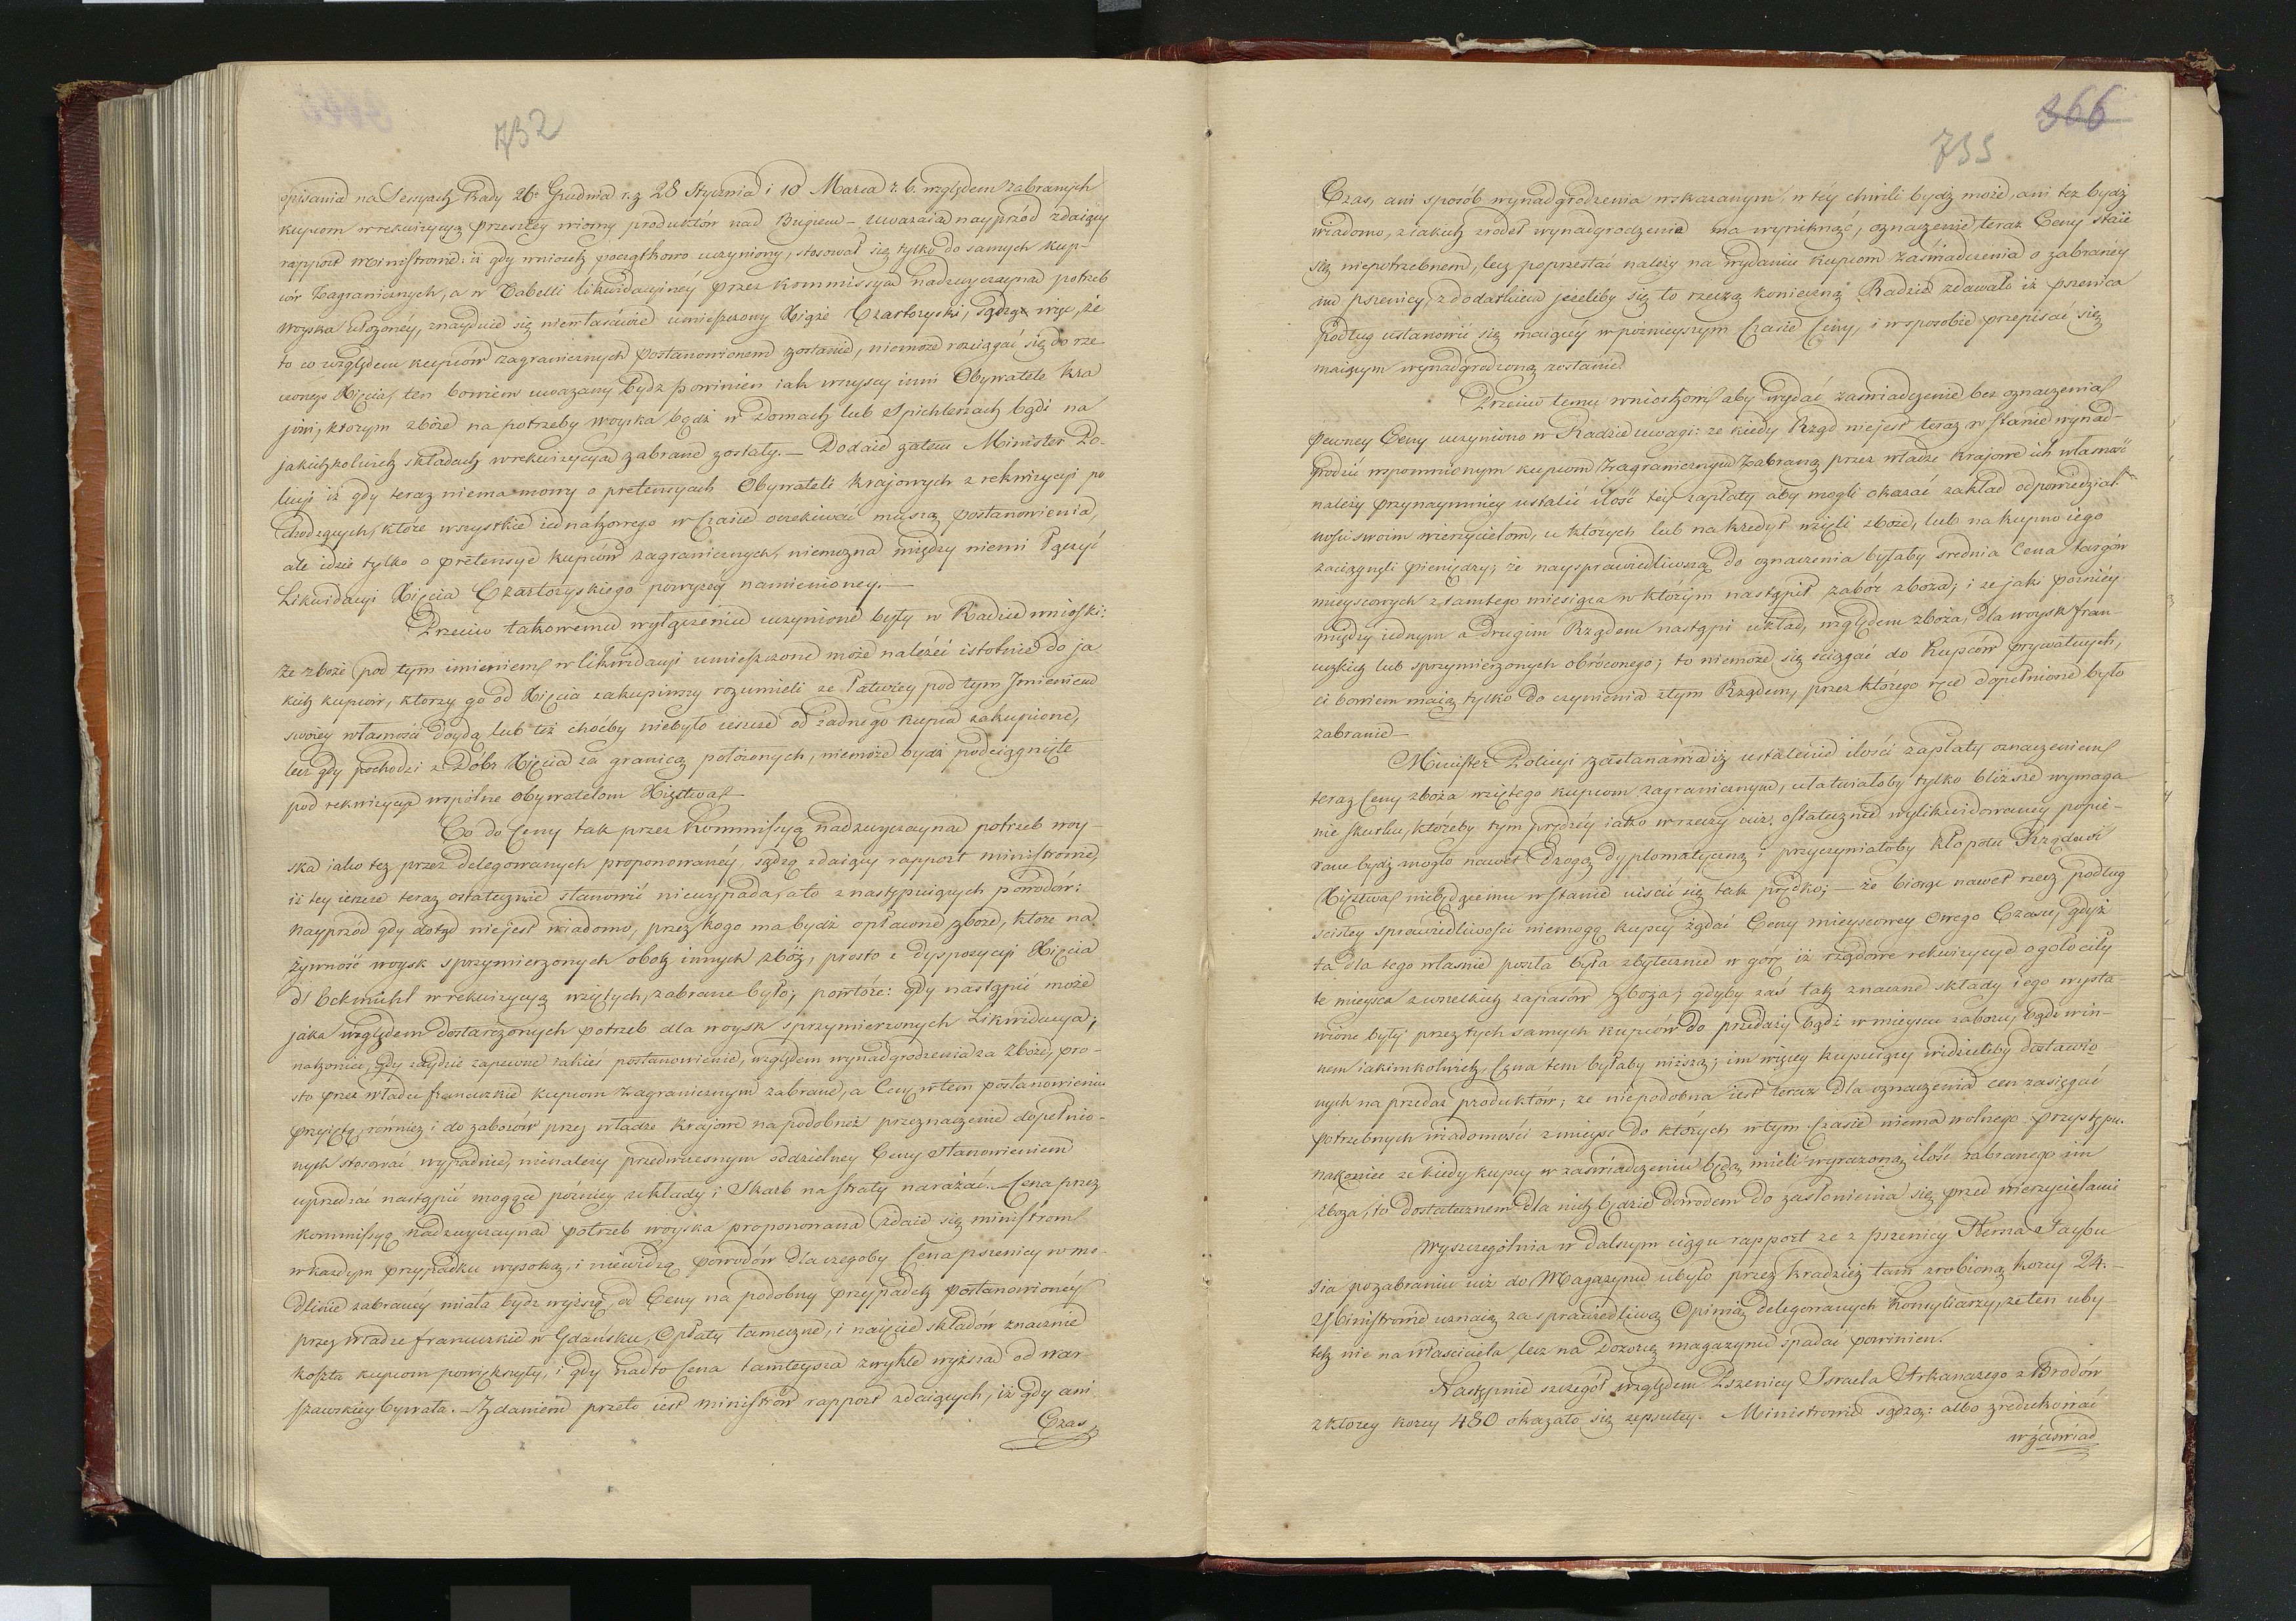 732
opisania na Sessyach Rady 26. Grudnia r. z. 28 Stycznia i 10 Marca r. b. względem zabranych
kupcom w rekwizycyą przeszłey wiosny produktów nad Bugiem – uważaiąc nayprzód zdaiący
rapport Ministrowie: iż gdy wniosek początkowo uczyniony, stosował się tylko do samych kup-
ców Zagranicznych, a w Tabelli likwidacyiney przez Kommissyą nadzwyczayną potrzeb
woyska ułożoney, znayduie się niewłaściwie umieszczony Xiąże Czartoryski, sądzą więc, że
to co względem kupców zagranicznych postanowionem zostanie, niemoże rozciągać się do rze
czonego Xięcia, ten bowiem uważany bydź powinien iak wszyscy inni Obywatele Kra
jowi, ktorym zboże na potrzeby woyska bądź w domach lub Spichlerzach bądź na
jakichkolwiek składach w rekwizycyą zabrane zostały. – Dodaie zatem Minister Po-
licyi iż gdy teraz niema mowy o pretensyach Obywateli krajowych z rekwizycyi po
chodzących, które wszystkie iednakowego w czasie oczekiwać muszą postanowienia,
ale idzie tylko o pretensye kupców zagranicznych, niemożna między niemi łączyć
Likwidacyi Xięcia Czartoryskiego powyżey namienioney. –
Przeciw takowemu wyłączeniu uczynione były w Radzie wnioski:
że zboże pod tym imieniem w likwidacyi umieszczone może należeć istotnie do ja
kich kupców, ktorzy go od Xięcia zakupiwszy rozumieli że łatwiey pod tym Imieniem
swoiey własności doydą lub też choćby niebyło ieszcze od żadnego kupca zakupione,
lecz gdy pochodzi z Dóbr Xięcia za granicą położonych, niemoże bydź podciągnięte
pod rekwizycye wspólne Obywatelom Xięstwa –
Co do Ceny tak przez Kommissyą nadzwyczayną potrzeb woy-
ska iako też przez delegowanych proponowaney, sądzą zdaiący rapport ministrowie,
iż tey ieszcze teraz ostatecznie stanowić niewypada, a to z następuiących powodów:
Nayprzód gdy dotąd niejest wiadomo, przez kogo ma bydź opłacone zboże, które na
żywność woysk sprzymierzonych obok innych zbóż, prosto z dyspozycyi Xięcia
d'Eckmühl w rekwizycyą wziętych, zabrane było; powtóre: gdy nastąpić może
jaka względem dostarczonych potrzeb dla woysk sprzymierzonych Likwidacya;
nakoniec, gdy zaydzie zapewne iakieś postanowienie, względem wynadgrodzenia za Zboże, pro-
sto przez władze francuzkie kupcom Zagranicznym zabrane, a Ceny w tem postanowieniu
przyiętą, również i do zaborów przez władze krajowe na podobneż przeznaczenie dopełnio-
nych stosować wypadnie, nienależy przedwczesnym oddzielney Ceny stanowieniem
uprzedzać nastąpić mogące później układy i Skarb na straty narażać. – Cena przez
Kommissyą Nadzwyczayną potrzeb woyska proponowana zdaie się ministrom
w każdym przypadku wysoką, i niewidzą powodów dla czegoby Cena pszenicy w mo-
dlinie zabraney miała bydź wyższą, od Ceny na podobny przypadek postanowioney
przez Władze francuzkie w Gdańsku, Opłaty tameczne, i naięcie składów znacznie
koszta kupcom powiększyły, i gdy nadto Cena tamteysza zwykle wyższa od war-
szawskiey bywała. – Zdaniem przeto iest ministrów rapport zdaiących, iż gdy ani
Czas
366
733
Czas, ani sposób wynadgrodzenia wskazanym w tey chwili bydź może, ani też bydź
wiadomo, z iakich zrodeł wynadgrodzenie ma wyniknąć, oznaczenie teraz Ceny staie
się niepotrzebnem, lecz poprzestać należy na wydaniu kupcom zaświadczenia o zabraney
im pszenicy, z dodatkiem jeżeliby się to rzeczą konieczną Radzie zdawało iż pszenica
podług ustanowić się maiącey w poźnieyszym Czasie Ceny, i w sposobie przepisać się
maiącym wynadgrodzoną zostanie.
Przeciw temu wnioskowi aby wydać zaświadczenie bez oznaczenia
pewney Ceny uczyniono w Radzie uwagi: że kiedy Rząd niejest teraz w stanie wynad-
grodzić wspomnionym kupcom Zagranicznym Zabraną przez władze krajowe ich własność
należy przynaymniey ustalić ilość tey zapłaty aby mogli okazać zakład odpowiedzial-
ności swoim wierzycielom, u ktorych lub na kredyt wzięli zboże, lub na kupno iego
zaciągnęli pieniędzy; że naysprawiedliwszą do oznaczenia byłaby srednia Cena targów
mieyscowych z tamtego miesiąca w którym nastąpił zabór zboża; i że jaki poźniey
między iednym a drugim Rządem nastąpi układ, względem zboża, dla woysk fran-
cuzkich lub sprzymierzonych obróconego; to niemoże się sciągać do kupców prywatnych,
ci bowiem maią tylko do czynienia z tym Rządem, przez którego rzecz dopełnione było
zabranie –
Minister Policyi zastanawia iż ustalenie ilości zapłaty oznaczeniem
teraz Ceny zboża wziętego kupcom zagranicznym, ułatwiałoby tylko bliższe wymaga
nie skutku, któreby tym prędzey iako w rzeczy iuż ostatecznie wylikwidowaney popie-
rane bydź mogło nawet Drogą dyplomatyczną i przyczyniałoby kłopotu Rządowi
Xięstwa niebędącemu w stanie uiścić się tak prędko; – że biorąc nawet rzecz podług
scisłey sprawiedliwości niemogą kupcy żądać Ceny mieyscowey Owego Czasu, gdyż
ta dla tego własnie poszła była zbytecznie w górę iż rządowe rekwizycye ogołociły
te mieysca z wszelkich zapasów zboża; gdyby zaś tak znaczne składy iego wysta-
wione były przez tych samych kupców do przedaży bądź w mieyscu zaboru, bądź w in-
nem iakimkolwiek, Cena tem byłaby niższą; im więcey kupuiący widzieliby dostawio-
nych na przedaż produktów; że niepodobna iest teraz dla oznaczenia cen zasięgać
potrzebnych wiadomości z mieysc do których w tym Czasie niema wolnego przystępu.
nakoniec że kiedy kupcy w zaświadczeniu będą mieli wyrażoną ilość zabranego im
zboża, to dostatecznem dla nich będzie dowodem do zasłonienia się przed wierzycielami
Wyszczególnia w dalszym ciągu rapport że z pszenicy Herna Taybu
sia po zabraniu iuż do Magazynu ubyło przez kradzież tam zrobioną korcy 24. –
Ministrowie uznaią za sprawiedliwą Opinią delegowanych Konsyliarzy, że ten uby-
tek nie na własciciela lecz na Dozorcę magazynu spadać powinien.
Następnie szczegół względem Pszenicy Israela Arkanazego z Brodów
z ktorey korcy 480 okazało się zepsutey. Ministrowie sądzą: albo zredukować
w zaświad